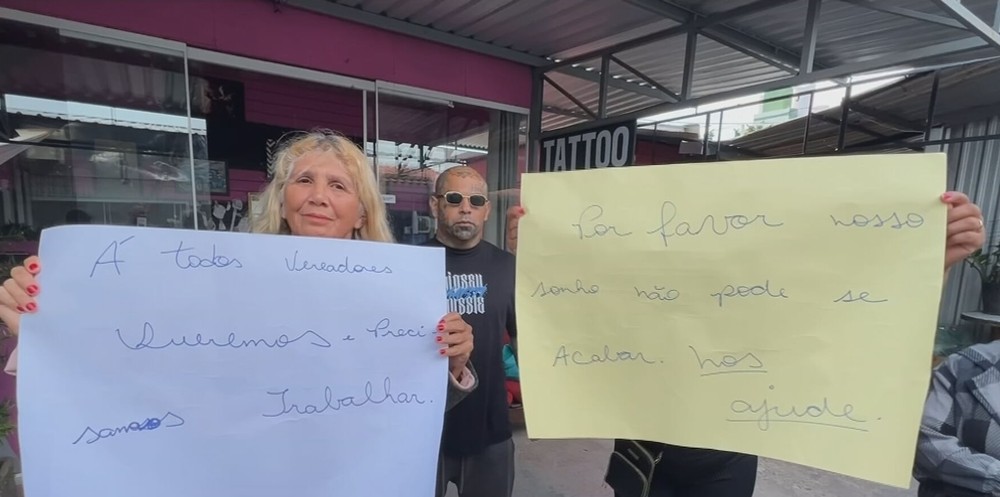 À todos Vereadores
Queremos e Preci-
samos Trabalhar.
TATTOO
Por favor nosso
sonho não pode se
Acabar. Nos
ajude.